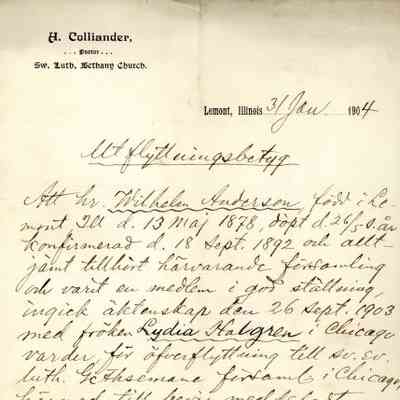 A. Colliander,
... Pastor ...
Sw. Luth. Bethany Church.
Lemont, Illinois 31 Jan. 1904
Utflyttningsbetyg
Att hr. Wilhelm Anderson, född i Le-
mont, Ill d. 13 Maj 1878, döpt d. 26/5 s. år
konfirmerad d. 18 Sept. 1892 och allt-
jämt tillhört härvarande församling
och varit en medlem i god ställning,
ingick äktenskap den 26 Sept. 1903
med fröken Lydia Halgren i Chicago
varder, för öfverflyttning till sv. ev.
luth. Gethsemane församl i Chicago,
härmed till bevis meddeladt